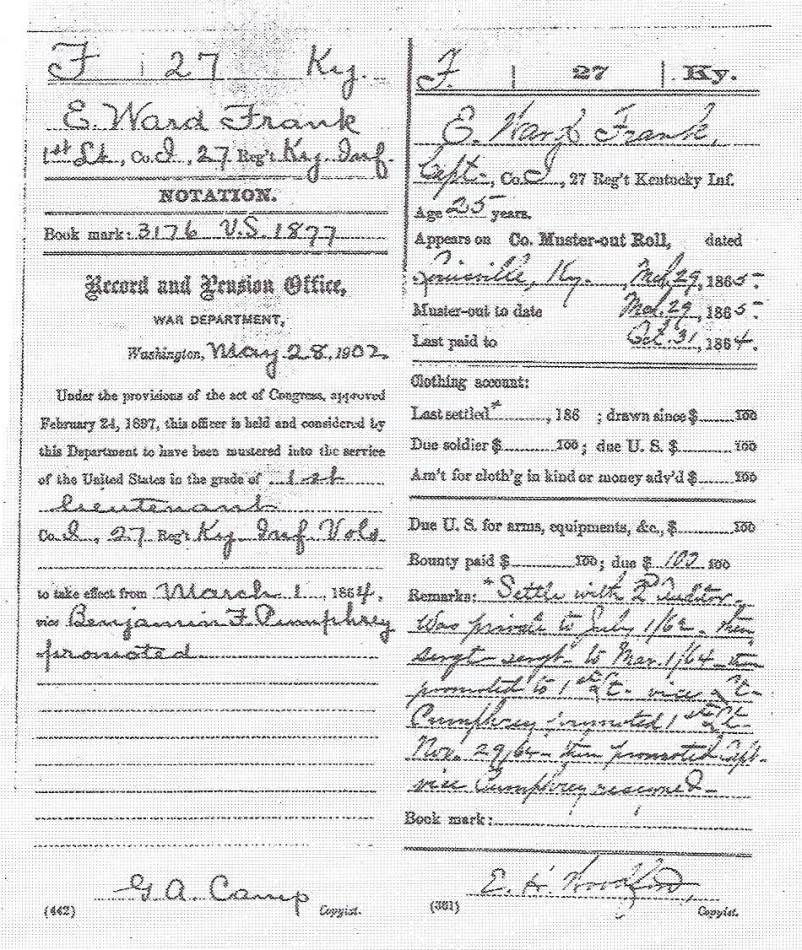 F | 27 Ky.
E. Ward Frank
1st Lt., Co. I, 27 Reg't Ky. Inf.
NOTATION.
Book mark: 3176 V.S. 1877
Record and Pension Office,
WAR DEPARTMENT,
Washington, May 28, 1902
Under the provisions of the act of Congress, approved
February 24, 1897, this officer is held and considered by
this Department to have been mustered into the service
of the United States in the grade of 1st
lieutenant
Co. I, 27 Reg't Ky. Inf. Vols
to take effect from March 1, 1864,
vice Benjamin F. Pumphrey
promoted
G. A. Camp
(442) Copyist.
F. | 27 | Ky.
E. Ward Frank,
Capt., Co. I, 27 Reg't Kentucky Inf.
Age 25 years.
Appears on Co. Muster-out Roll, dated
Louisville, Ky. Mch. 29, 1865.
Muster-out to date Mch. 29, 1865.
Last paid to Oct. 31, 1864.
Clothing account:
Last settled * , 186 ; drawn since $ 100
Due soldier $ 100; due U. S. $ 100
Am't for cloth'g in kind or money adv'd $ 100
Due U. S. for arms, equipments, &c., $ 100
Bounty paid $ 100; due $ 100
Remarks: * Settle with 2d Auditor -
Was private to July 1/62 - then
sergt - sergt - to Mar. 1/64 - then
promoted to 1st Lt - vice Lt -
Pumphrey promoted 1st Lt -
Nov. 29/64 - then promoted Capt -
vice Pumphrey
Book mark:
E. H.
(361) Copyist.